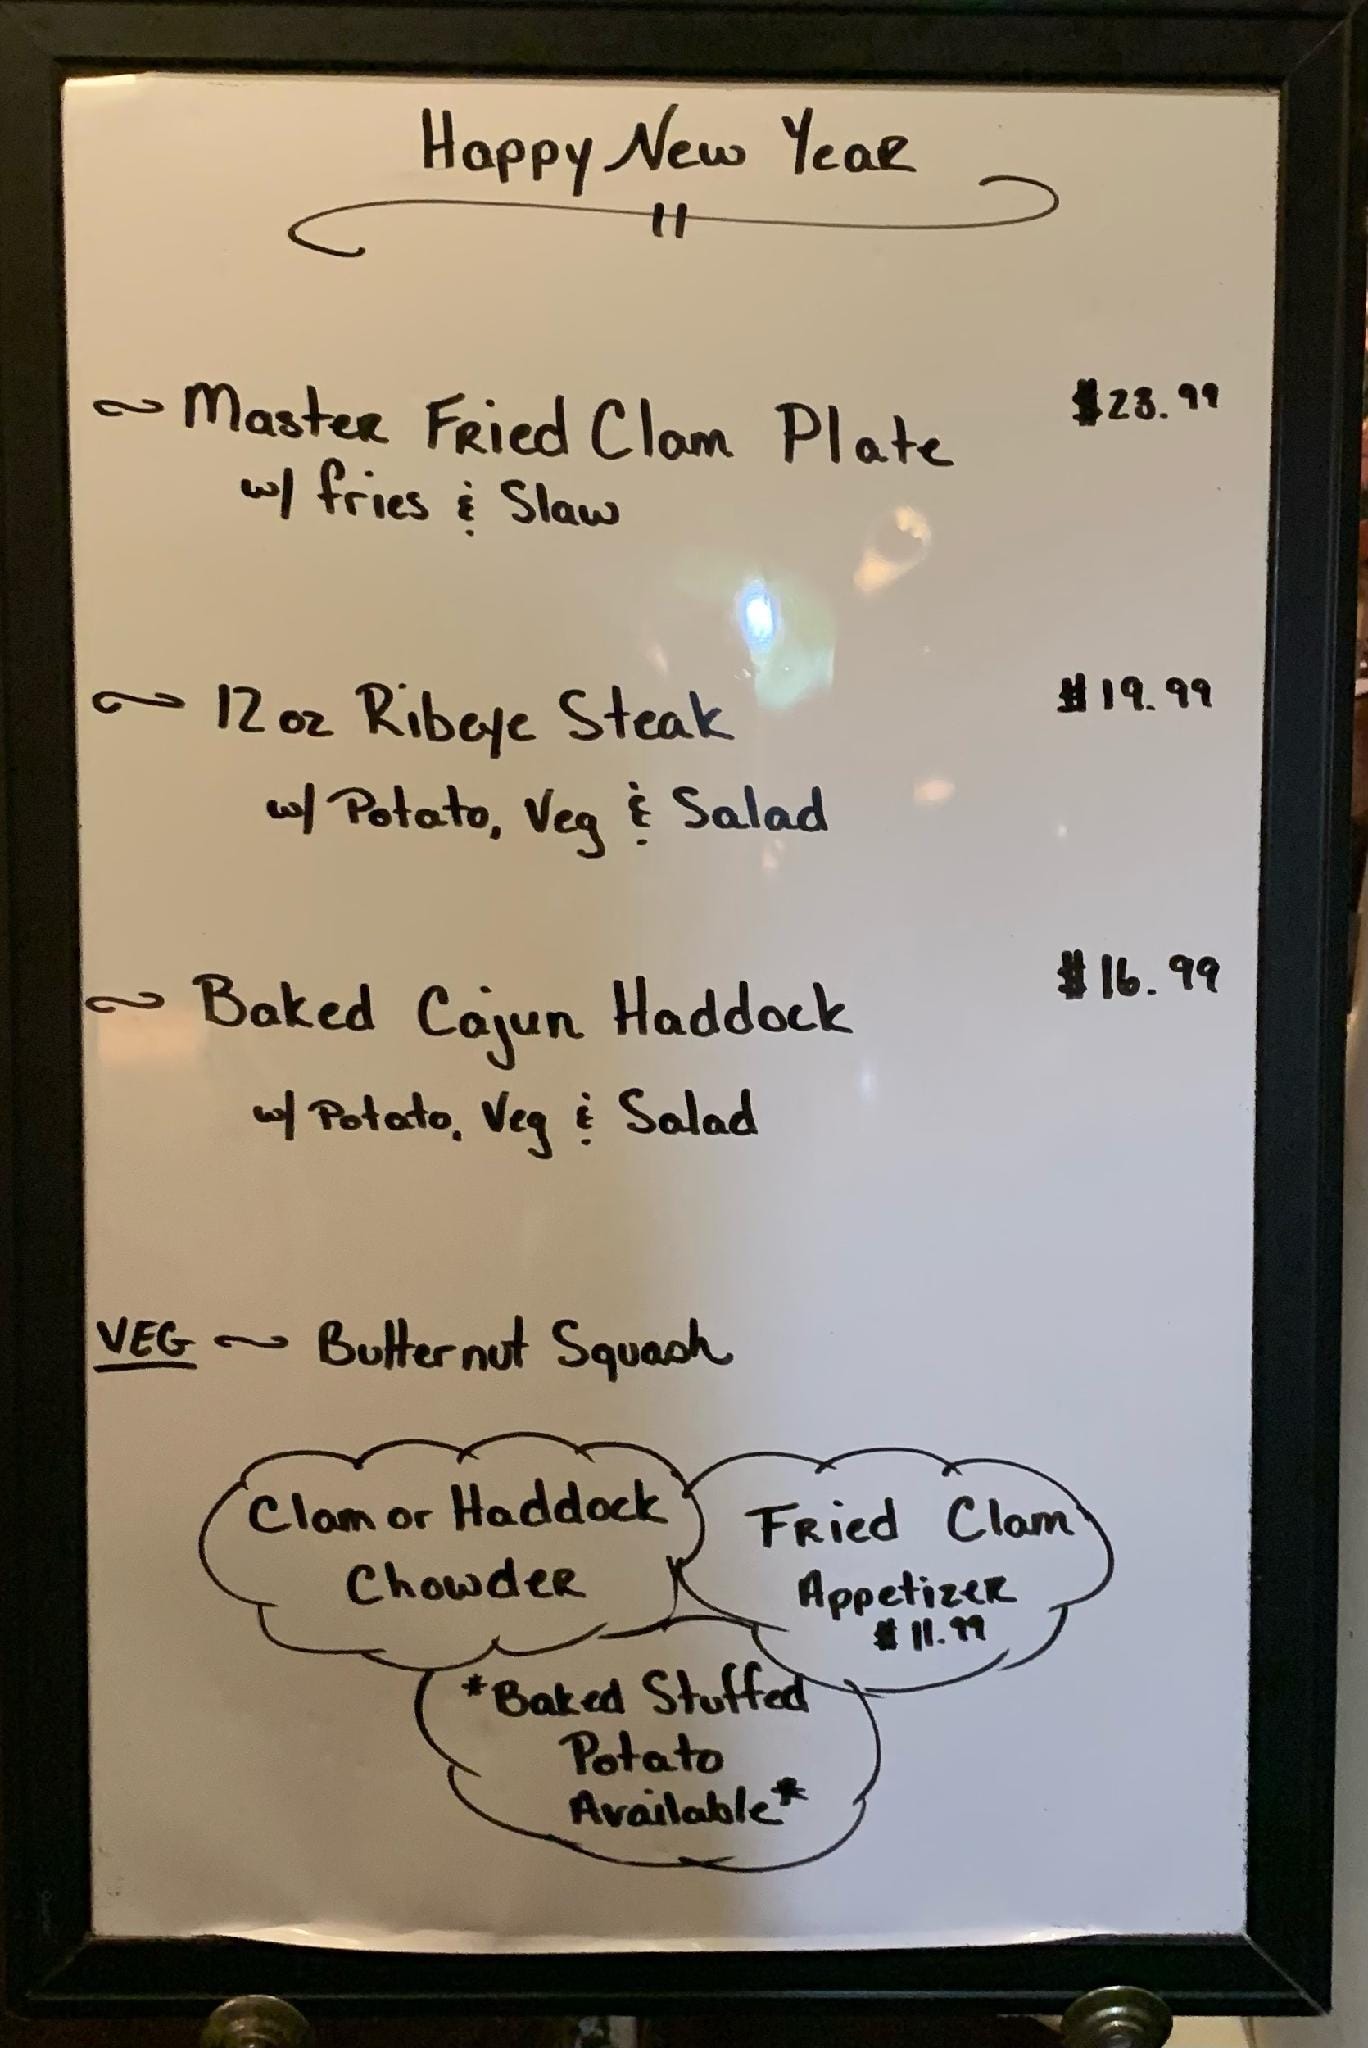 Happy New Year
~ Master Fried Clam Plate $23.99
w/ fries & Slaw
~ 12 oz Ribeye Steak $19.99
w/ Potato, Veg & Salad
~ Baked Cajun Haddock $16.99
w/ Potato, Veg & Salad
VEG ~ Butternut Squash
Clam or Haddock
Chowder
Fried Clam
Appetizer
$11.99
*Baked Stuffed
Potato
Available*